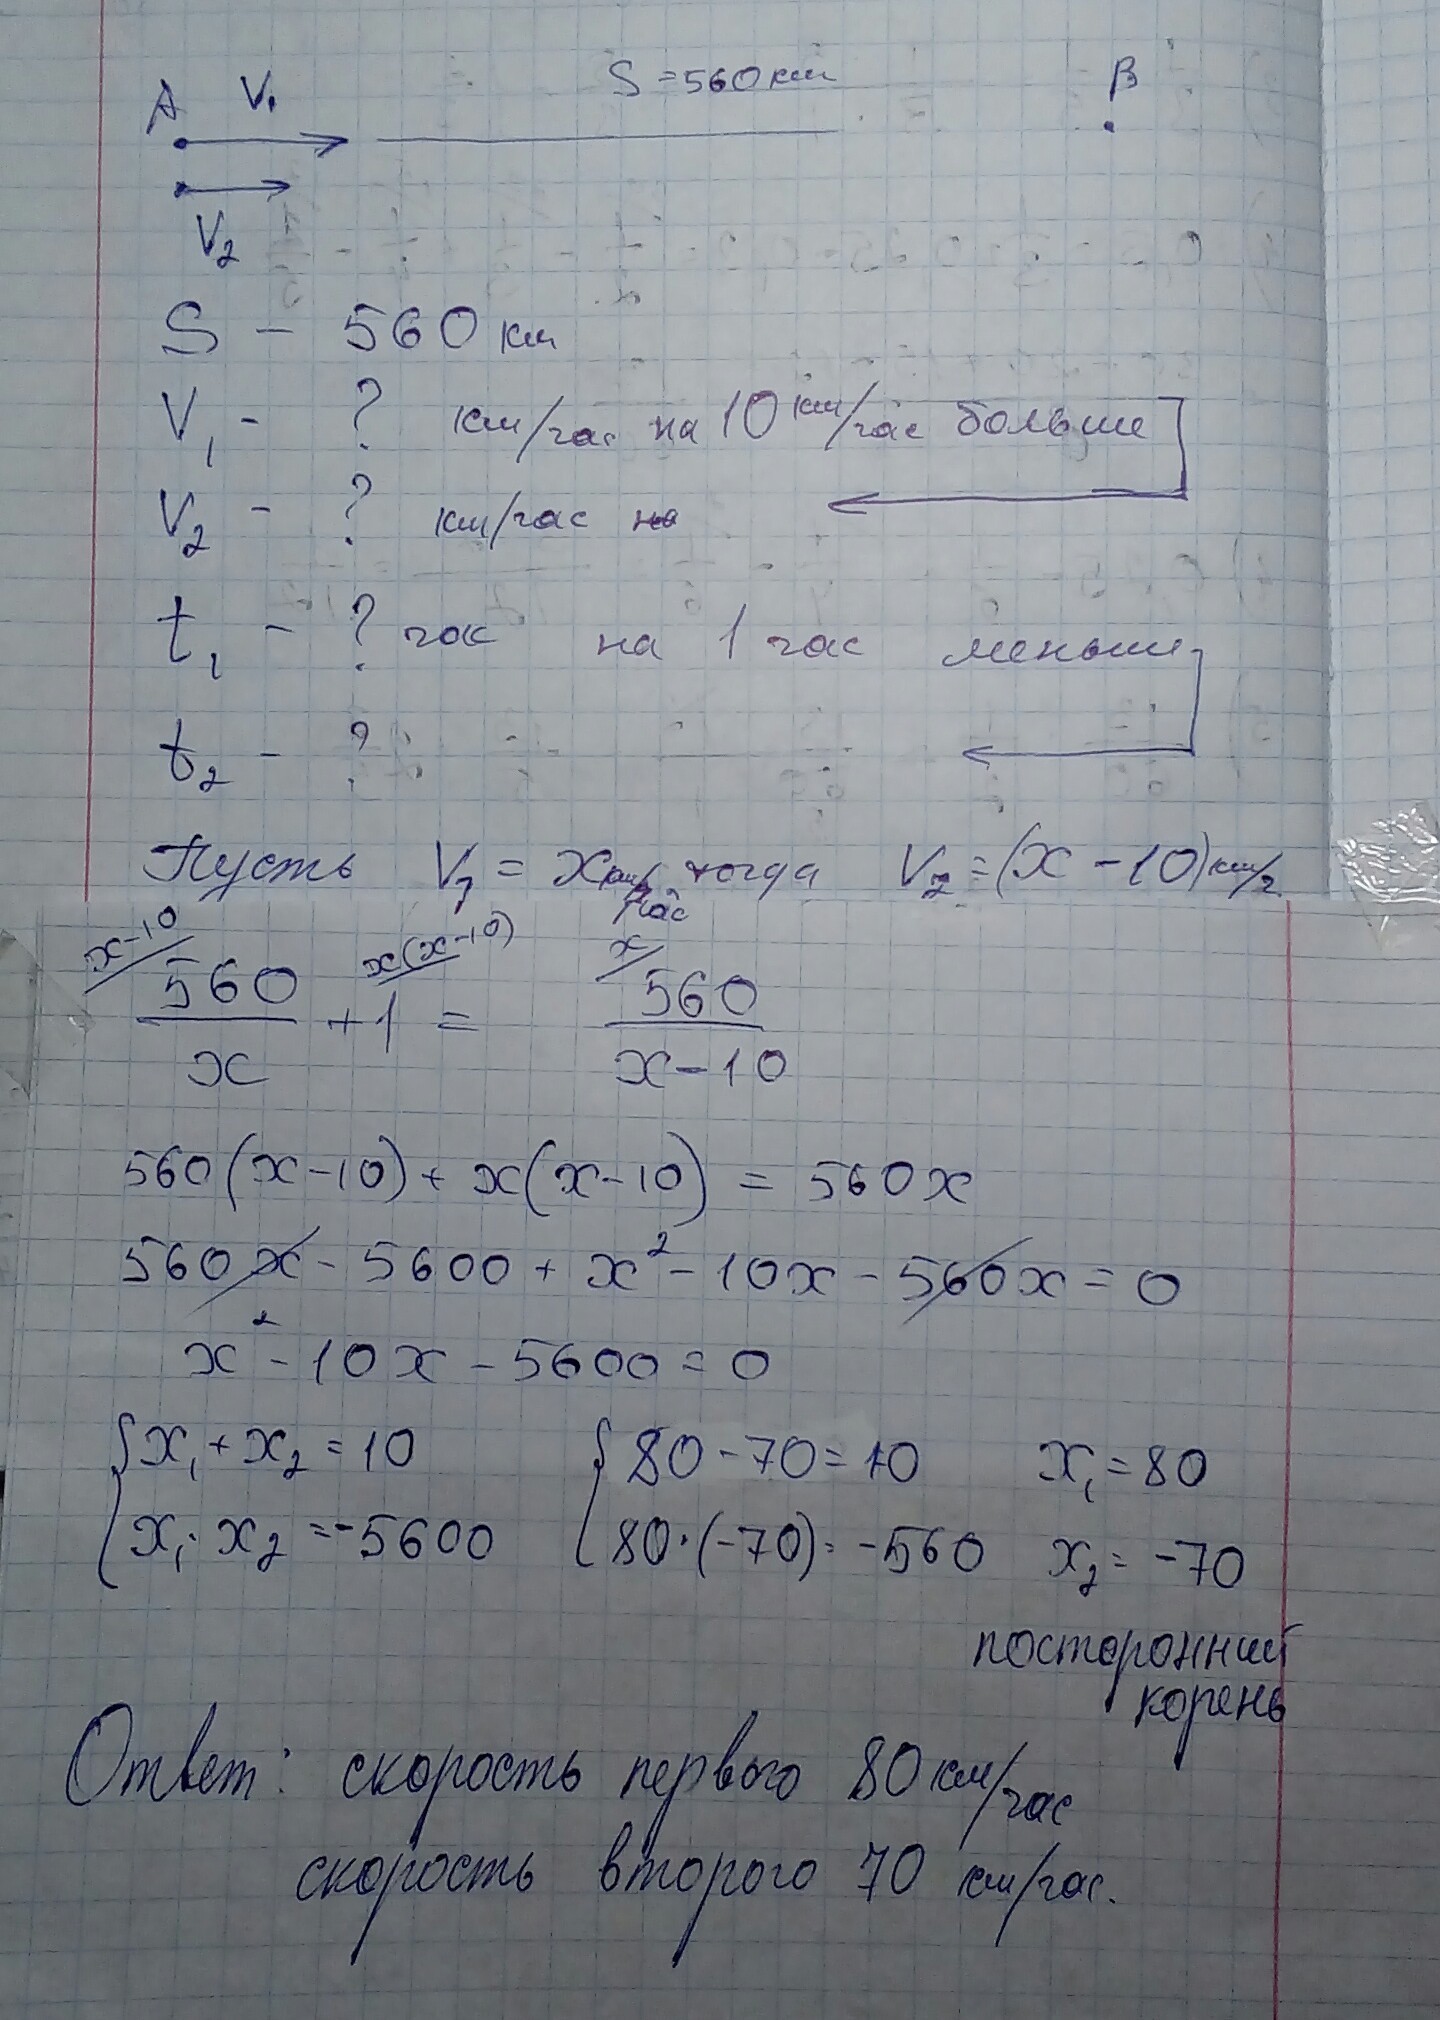 A V₁ S = 560 км B
V₂
S – 560 км
V₁ – ? км/час на 10 км/час больше
V₂ – ? км/час на
t₁ – ? час на 1 час меньше
t₂ – ?
Пусть V₁ = x км/час тогда V₂ = (x – 10) км/г
x–10/ x(x–10)/ x/
560/x + 1 = 560/(x–10)
560(x–10) + x(x–10) = 560x
560x – 5600 + x² – 10x – 560x = 0
x² – 10x – 5600 = 0
{ x₁ + x₂ = 10 { 80 – 70 = 10 x₁ = 80
x₁ · x₂ = –5600 80 · (–70) = –560 x₂ = –70
посторонний
корень
Ответ: скорость первого 80 км/час
скорость второго 70 км/час.